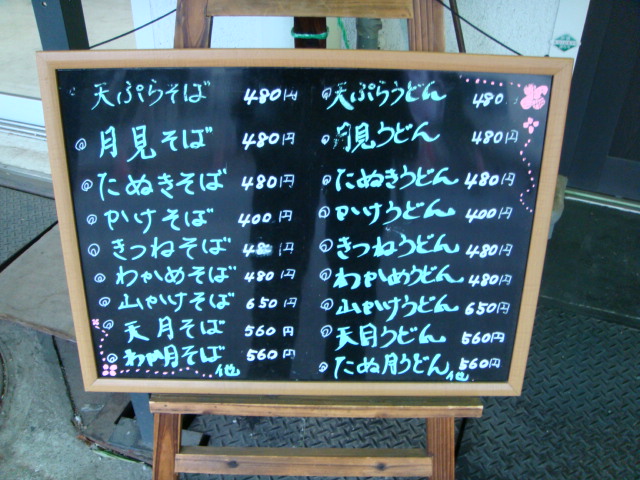 天ぷらそば 480円
月見そば 480円
たぬきそば 480円
かけそば 400円
きつねそば 48 円
わかめそば 480円
山かけそば 650円
天月そば 560円
わか月そば 560円
他
天ぷらうどん 480
月見うどん 480円
たぬきうどん 480円
かけうどん 400円
きつねうどん 480円
わかめうどん 480円
山かけうどん 650円
天月うどん 560円
たぬ月うどん 560円
他